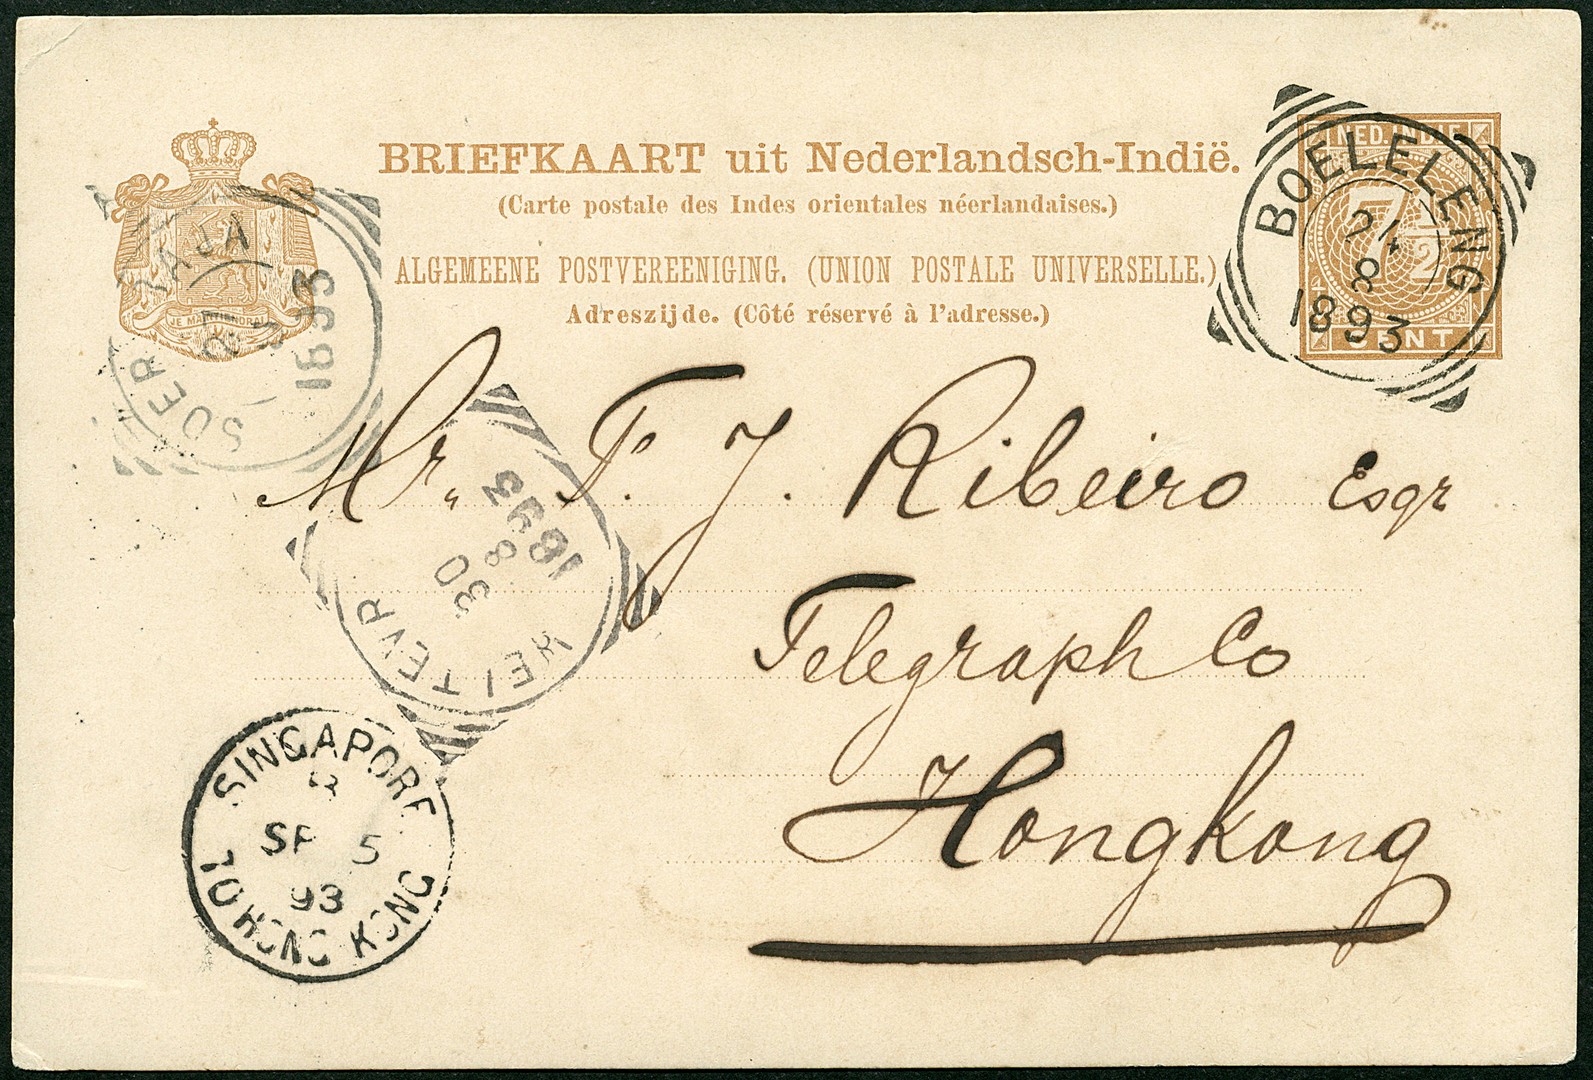 BRIEFKAART uit Nederlandsch-Indië.
(Carte postale des Indes orientales néerlandaises.)
ALGEMEENE POSTVEREENIGING. (UNION POSTALE UNIVERSELLE.)
Adreszijde. (Côté réservé à l'adresse.)
JE MAINTIENDRAI
NED. INDIE
7 1/2
CENT
BOELELENG
24
8
1893
SOERABAJA
1893
WELTEVR
30
8
1893
Mr. F. J. Ribeiro Esqr
Telegraph Co
Hongkong
SINGAPORE
SP 5
93
TO HONG KONG